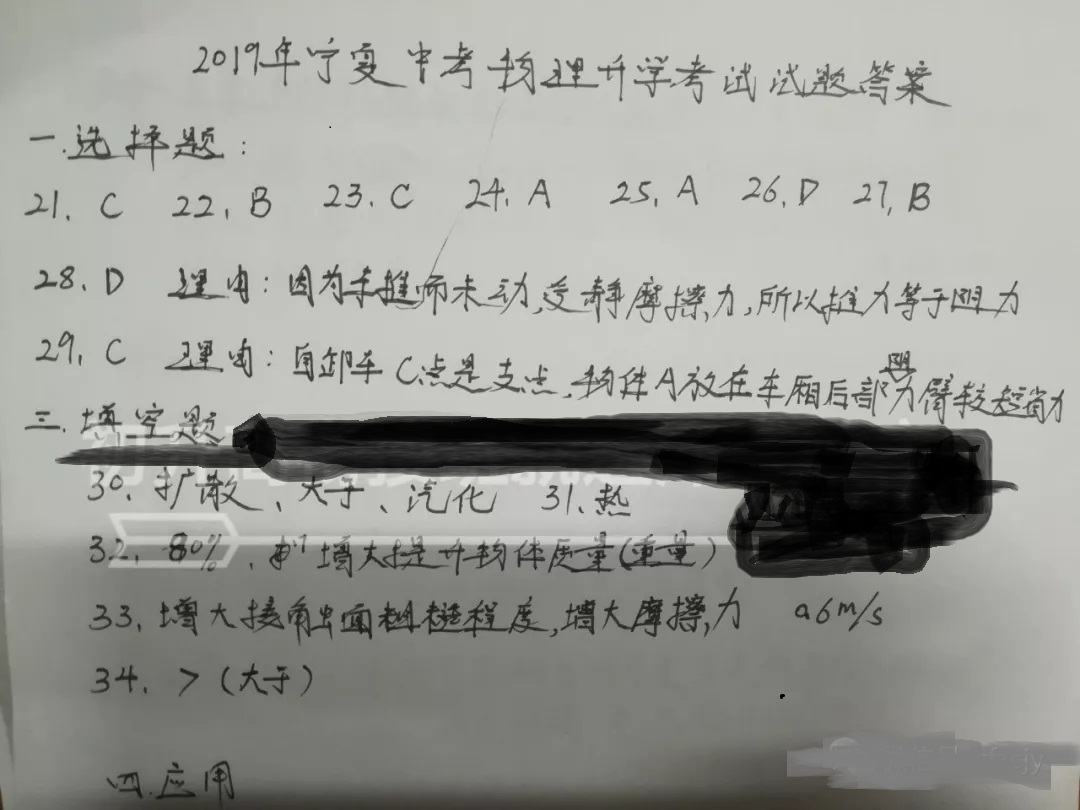 2019年宁夏中考物理升学考试试题答案
一.选择题:
21. C 22. B 23. C 24. A 25. A 26. D 27. B
28. D 理由:因为未推而未动,受静摩擦力,所以推力等于阻力
29. C 理由:自卸车C点是支点,物体A放在车厢后部阻力臂较短省力
三.填空题
30. 扩散、大于、汽化 31. 热
32. 80%、增大提升物体质量(重量)
33. 增大接触面粗糙程度,增大摩擦力 0.6m/s
34. >(大于)
四.应用